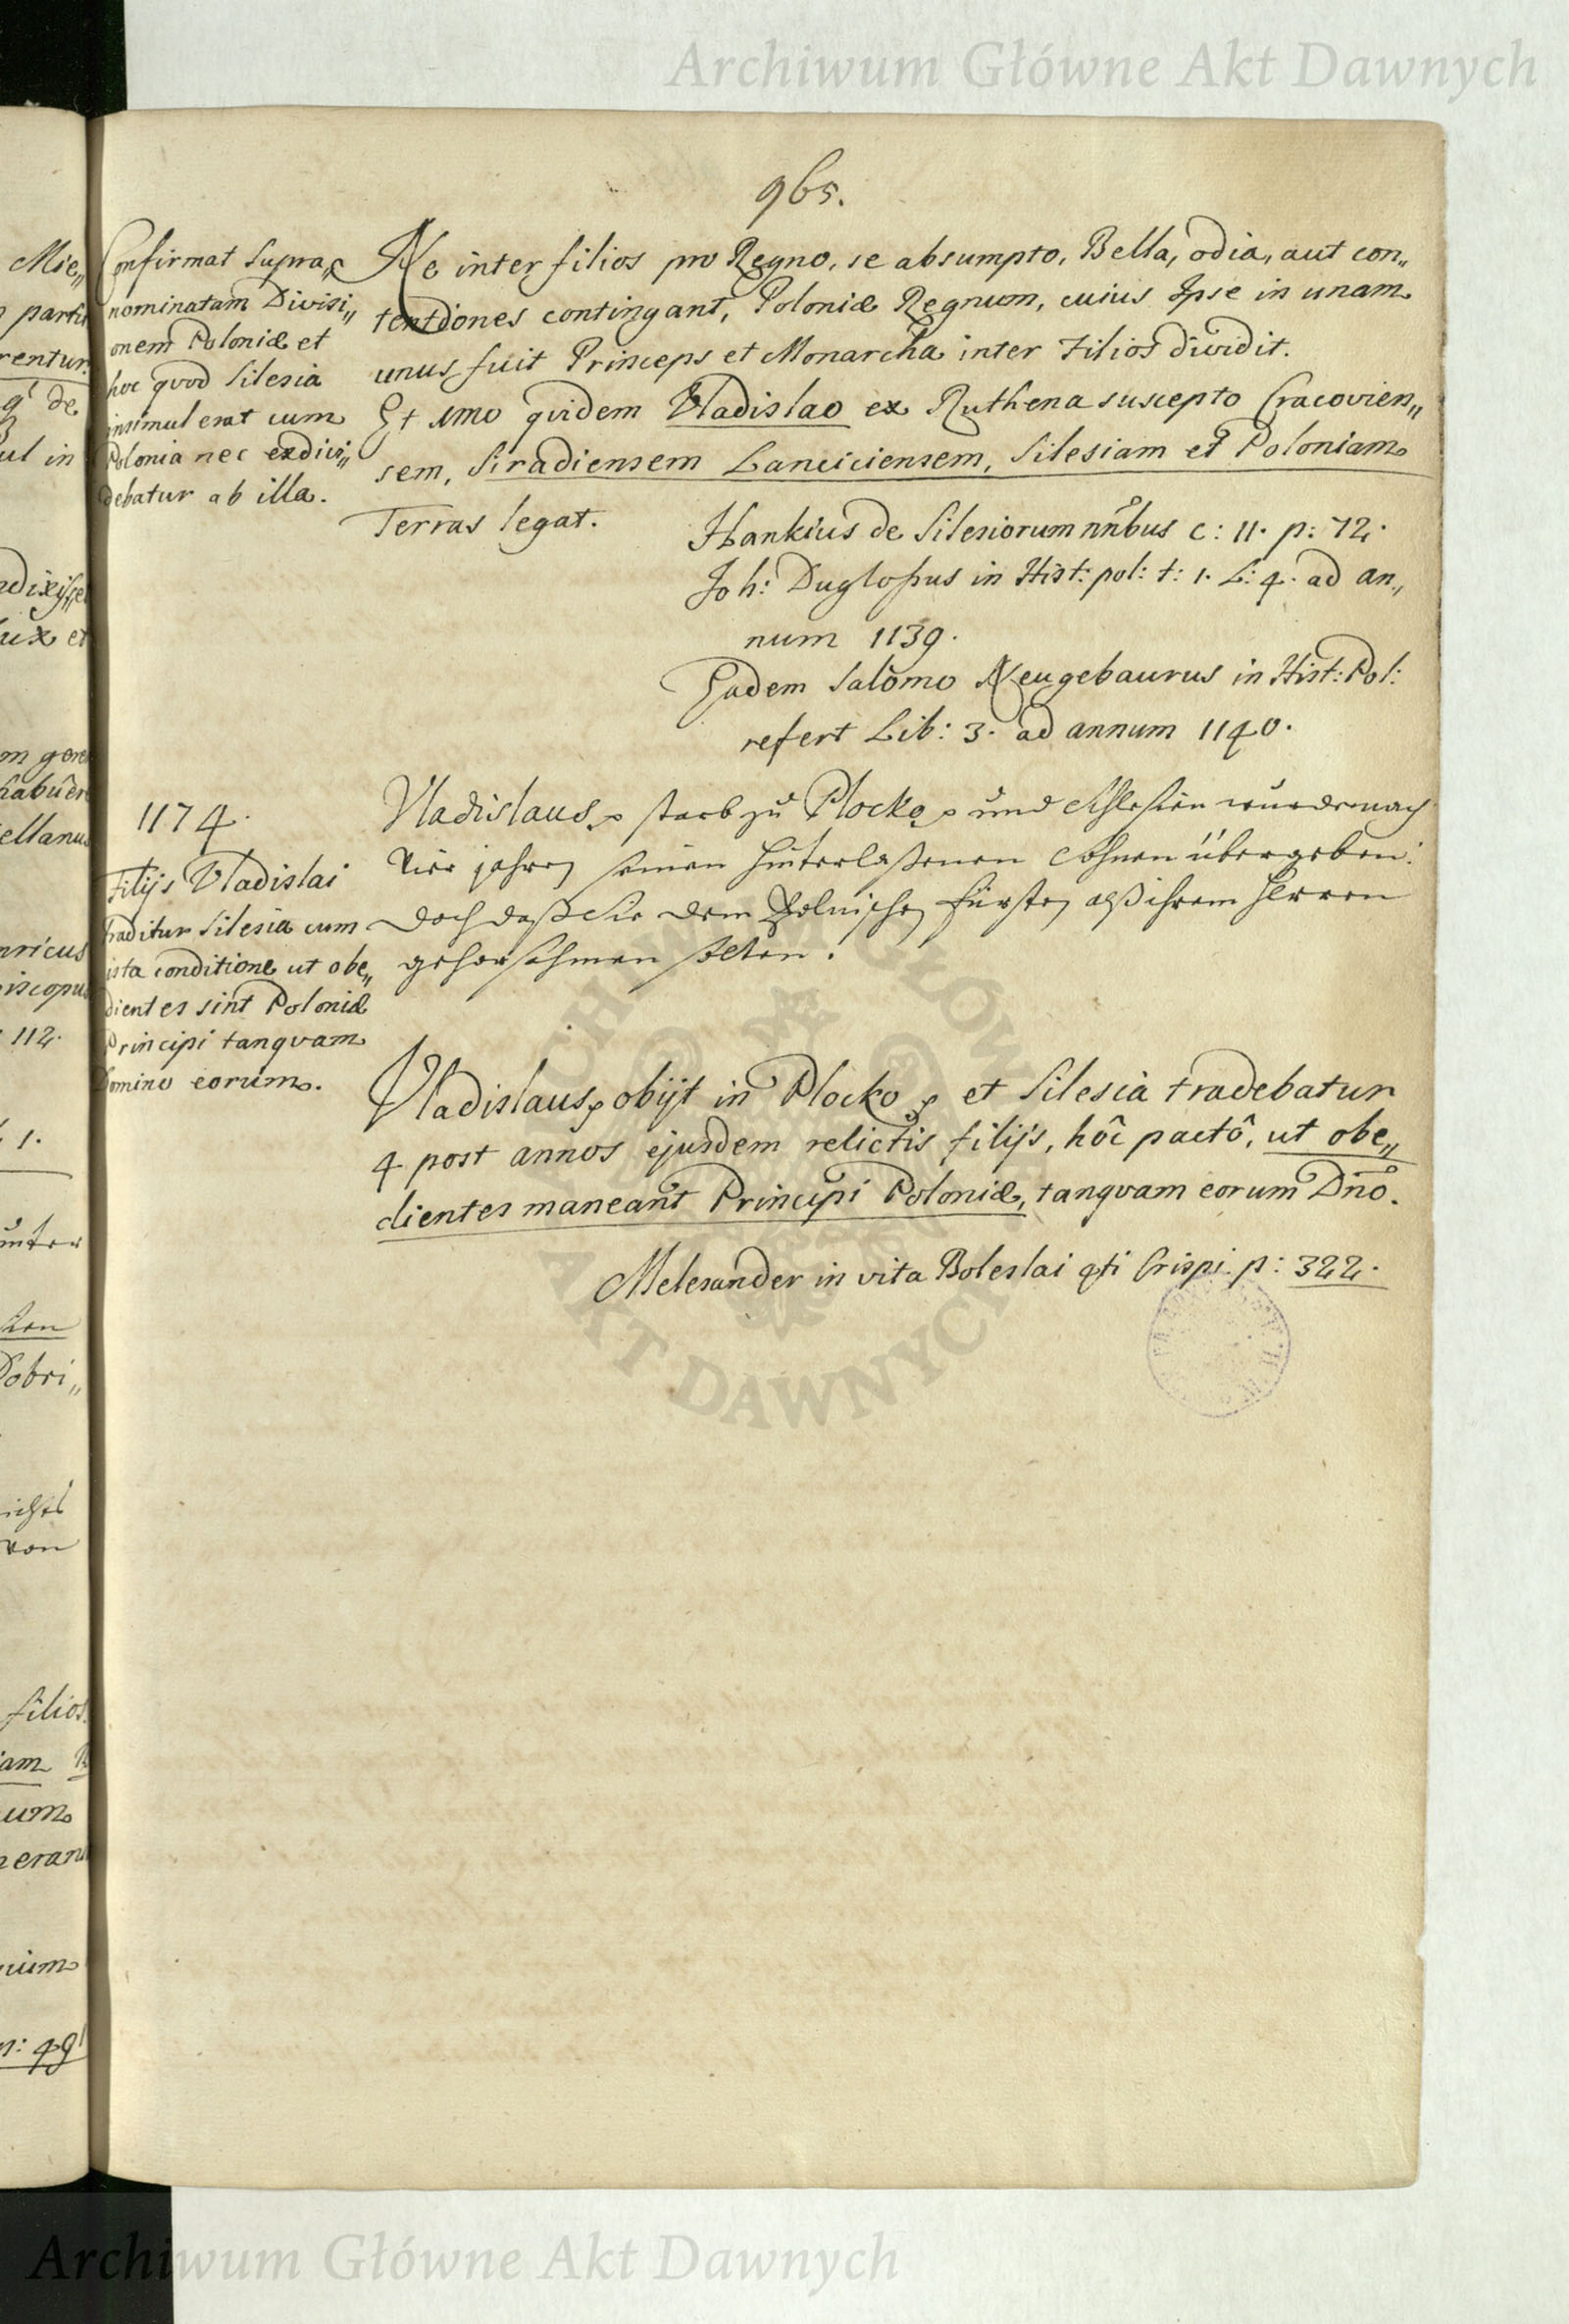 Archiwum Główne Akt Dawnych
965.
Confirmat supra„
nominatam Divisi„
onem Poloniæ et
hoc qvod Silesia
insimul erat cum
Polonia nec exdivi„
debatur ab illa.
Ne inter filios pro Regno, se absumpto, Bella, odia, aut con„
tentiones contingant, Poloniæ Regnum, cuius Ipse in unam
unus fuit Princeps et Monarcha inter Filios dividit.
Et 1mo qvidem Vladislao ex Ruthena suscepto Cracovien„
sem, Siradiensem Lanciciensem, Silesiam et Poloniam
Terras legat.
Hankius de Silesiorum nnbus c: 11. p: 72.
Joh: Duglossus in Hist: pol: t: 1. L: 4. ad an„
num 1139.
Eadem Salomo Neugebaurus in Hist: Pol:
refert Lib: 3. ad annum 1140.
1174.
Filijs Vladislai
traditur Silesia cum
ista conditione ut obe„
dientes sint Poloniæ
Principi tanqvam
Domino eorum.
Vladislaus starb zu Plocko und Schlesien wurde nach
vier jahren seinen hinterlaßenen Söhnen übergeben:
doch daß Sie dem Polnischen fürsten alß ihrem Herren
gehorsahmen solten.
Vladislaus obijt in Plocko et Silesia tradebatur
4 post annos ejusdem relictis filijs, hôc pactô, ut obe„
dientes maneant Principi Poloniæ, tanqvam eorum Dno.
Melesander in vita Boleslai 4ti Crispi p: 322.
ARCHIWUM GŁÓWNE AKT DAWNYCH
Archiwum Główne Akt Dawnych